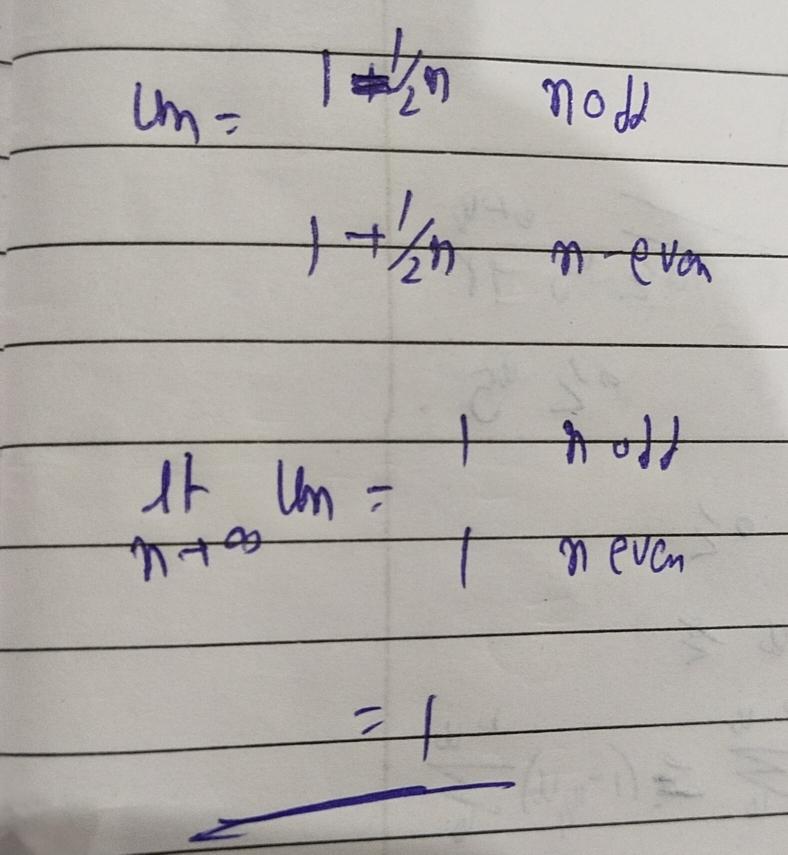 Un = 1 - 1/2n n odd
1 + 1/2n n even
lt Un = 1 n odd
n→∞ 1 n even
= 1